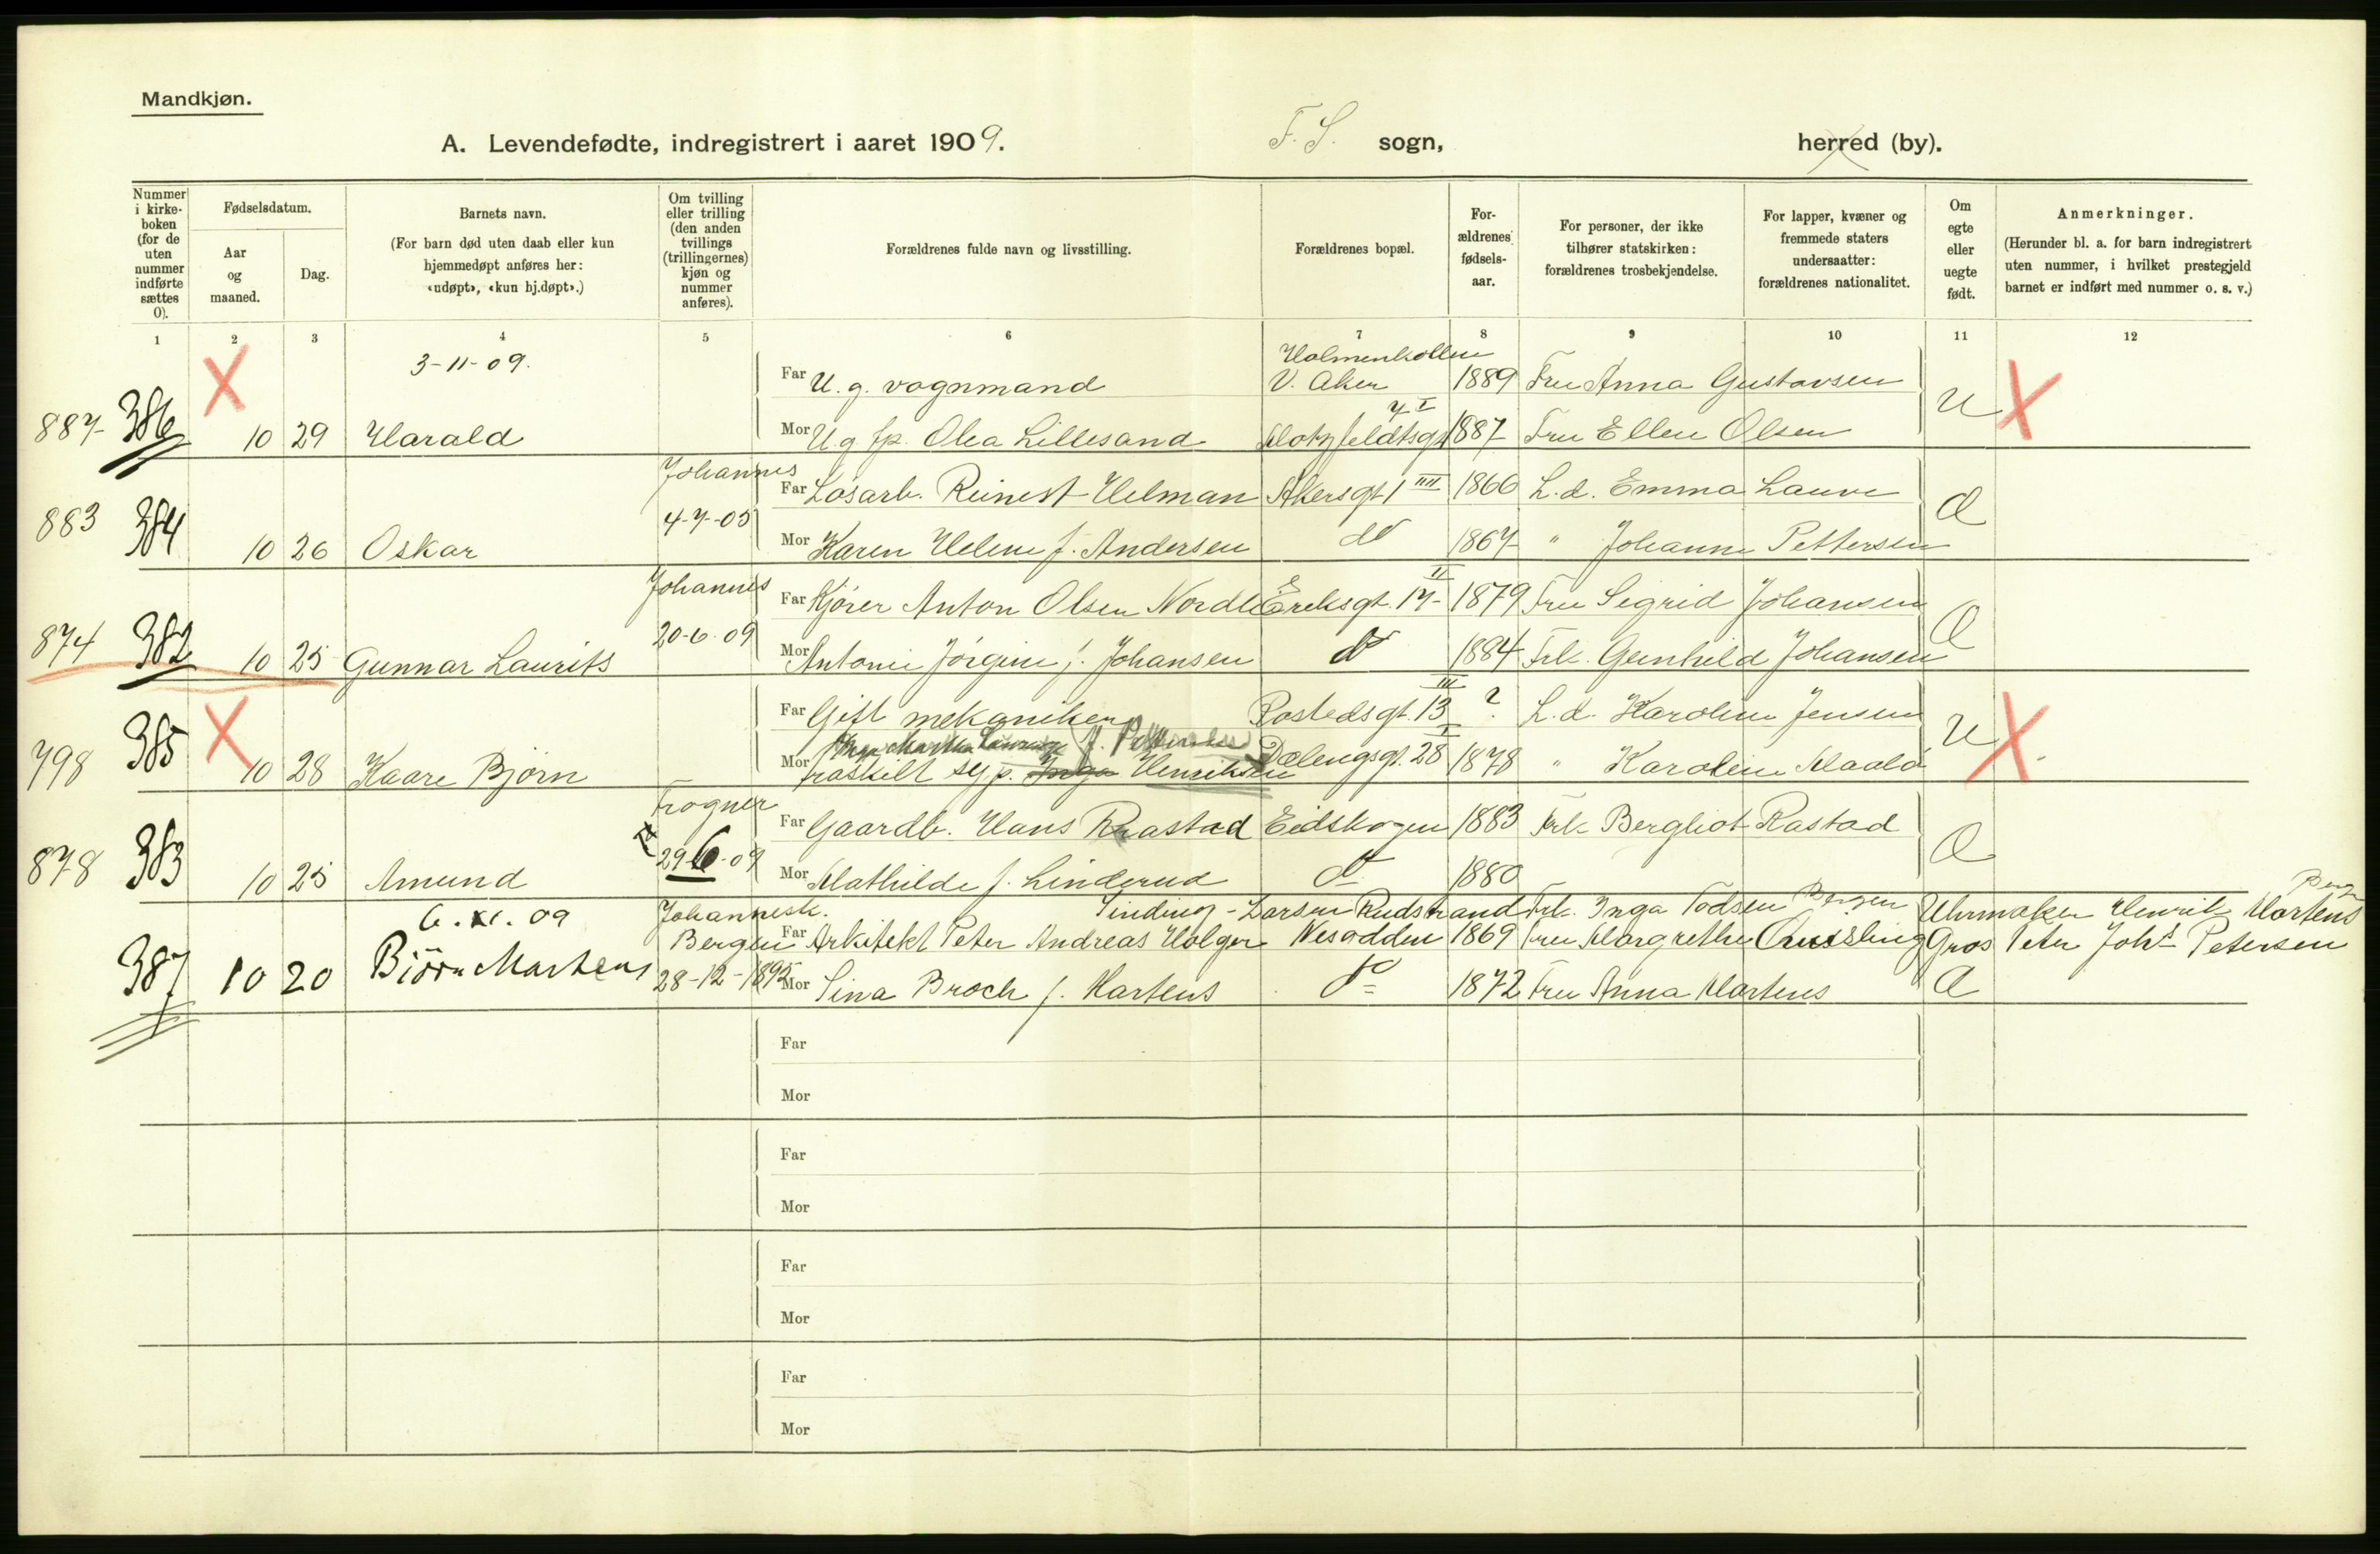 Mandkjøn.
A. Levendefødte, indregistrert i aaret 1909. F. S. sogn, herred (by).
Nummer i kirke-boken (for de uten nummer indførte sættes 0).
Fødselsdatum.
Aar og maaned.
Dag.
Barnets navn.
(For barn død uten daab eller kun hjemmedøpt anføres her: «udøpt», «kun hj.døpt».)
Om tvilling eller trilling (den anden tvillings (trillingernes) kjøn og nummer anføres).
Forældrenes fulde navn og livsstilling.
Forældrenes bopæl.
For-ældrenes fødsels-aar.
For personer, der ikke tilhører statskirken: forældrenes trosbekjendelse.
For lapper, kvæner og fremmede staters undersaatter: forældrenes nationalitet.
Om egte eller uegte født.
Anmerkninger.
(Herunder bl. a. for barn indregistrert uten nummer, i hvilket prestegjeld barnet er indført med nummer o. s. v.)
1 2 3 4 5 6 7 8 9 10 11 12
3-11-09. Holmenkollen
Far U. g. vognmand V. Aker 1889 Fru Anna Gustavsen
7 I
887 386 10 29 Harald Mor U g fp. Olea Lillesand Klotzfeldtsgt 1887 Fru Ellen Olsen u
Johannes
Far Løsarb. Reinest Helman Akersgt 1 IIII 1866 L.d. Emma Lauve
883 384 4-7-05 a
10 26 Oskar Mor Karen Helene f. Andersen do 1867 " Johanne Pettersen
Johannes II
Far Kjører Anton Olsen Nordli Eriksgt. 17 1879 Fru Sigrid Johansen
874 382 20-6-09 a
10 25 Gunnar Laurits Mor Antonie Jørgine f. Johansen do 1884 Frk. Gunhild Johansen
III
Far Gift mekaniker Rostedsgt. 13 ? L.d. Karoline Jensen
798 385 u
10 28 Kaare Bjørn Mor fraskilt syp. Inga Henriksen Dælengsgt. 28 1878 " Karoline
Frogner
Far Gaardb. Hans Rastad Eidskogen 1883 Frk Bergliot Rastad
878 383 29-6-09 a
10 25 Amund Mor Mathilde f. Linderud do 1880
6. XI. 09 Johannesk. Sinding-Larsen Rudstrand Frk. Inga Todsen Bergen Uhrmaker Henrik Martens Berg
Bergen Far Arkitekt Peter Andreas Holger Nesodden 1869 Fru Margrethe Quisling Gros Peter Johs Petersen
387 10 20 Bjørn Martens 28-12-1895 Mor Sina Broch f. Martens do 1872 Fru Anna Martens a
Far
Mor
Far
Mor
Far
Mor
Far
Mor